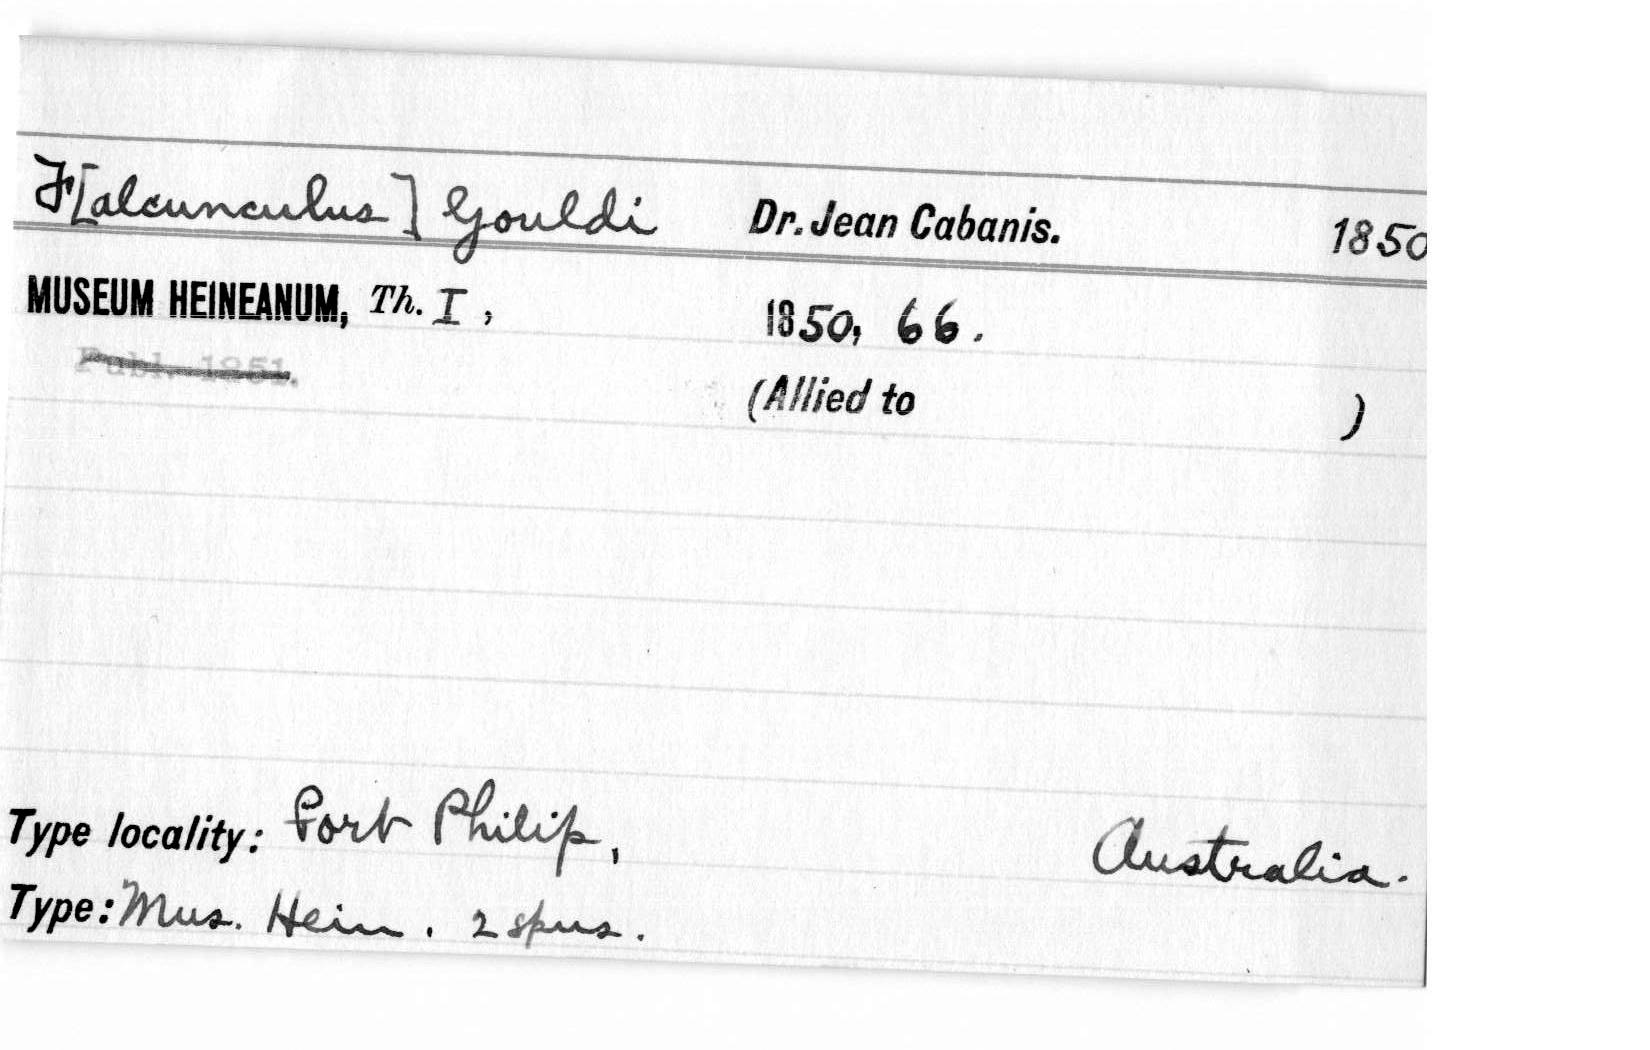 F[alcunculus] Gouldi Dr. Jean Cabanis. 1850
MUSEUM HEINEANUM, Th. I, 1850, 66.
Publ. 1851.
(Allied to )
Type locality: Port Philip, Australia.
Type: Mus. Hein. 2 spms.